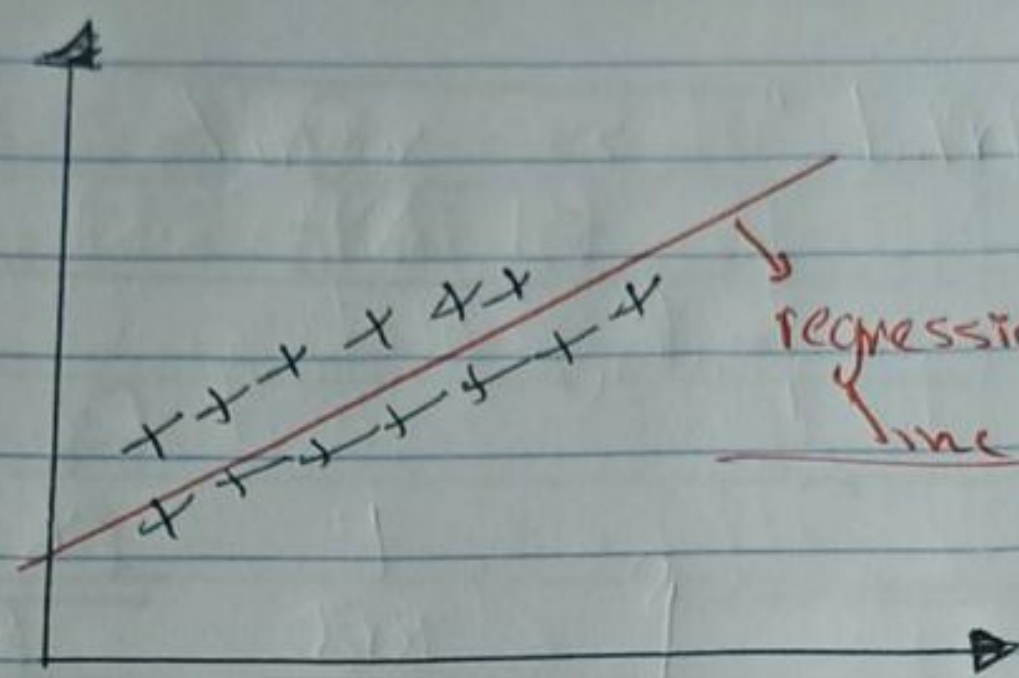 regressi
line